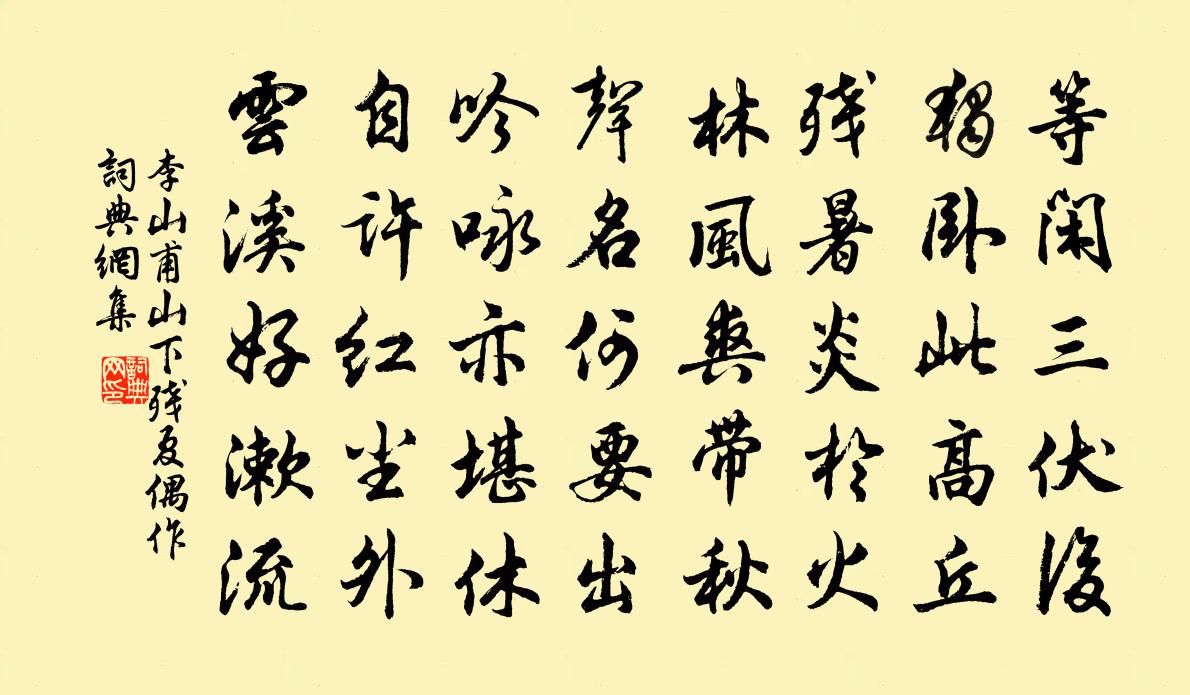 等閑三伏後
獨臥此高丘
殘暑炎於火
林風爽帶秋
聲名何要出
吟咏亦堪休
自許紅塵外
雲溪好漱流
李山甫山下殘夏偶作
詞典網集
詞典网印